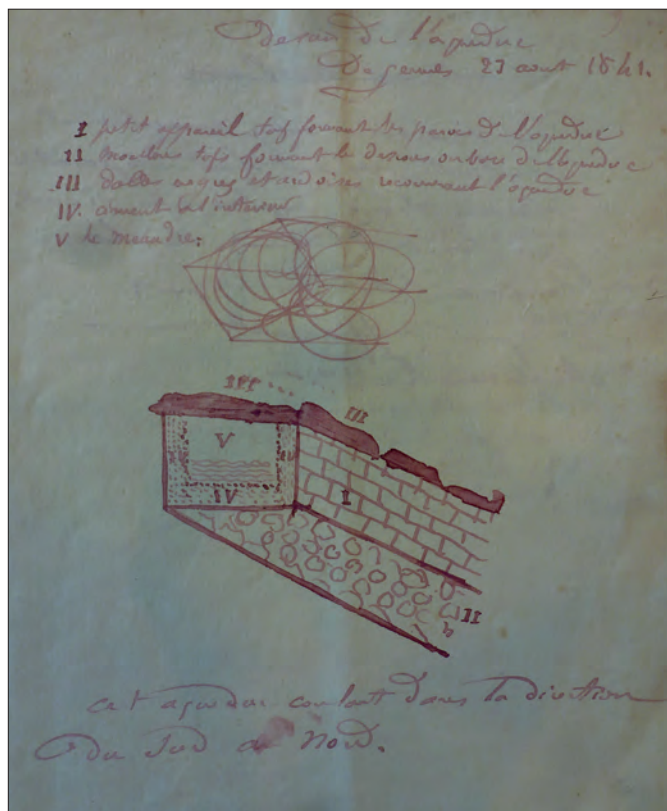 dessin de l'aqueduc
De gennes 23 aout 1841.
I petit appareil tuf formant les parois de l'aqueduc
II moellons tufs formant le dessous ou base de l'aqueduc
III dalles et ardoises recouvrant l'aqueduc
IV. ciment à l'interieur
V le meandre.
III III
V
IV IV
IV
I
II
cet aqueduc coulant dans la direction
du Sud au Nord.